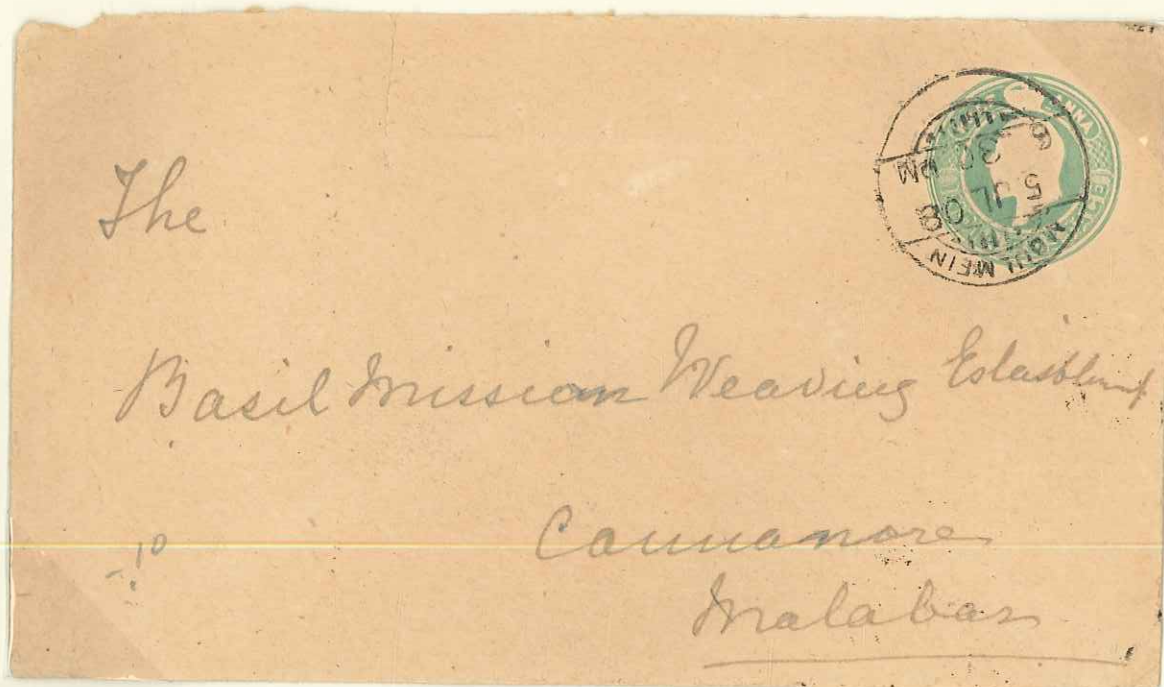 The
Basil Mission Weaving Establismt
Cannanore
Malabar
ANNA
MOULMEIN
5 JL 08
6 30 PM